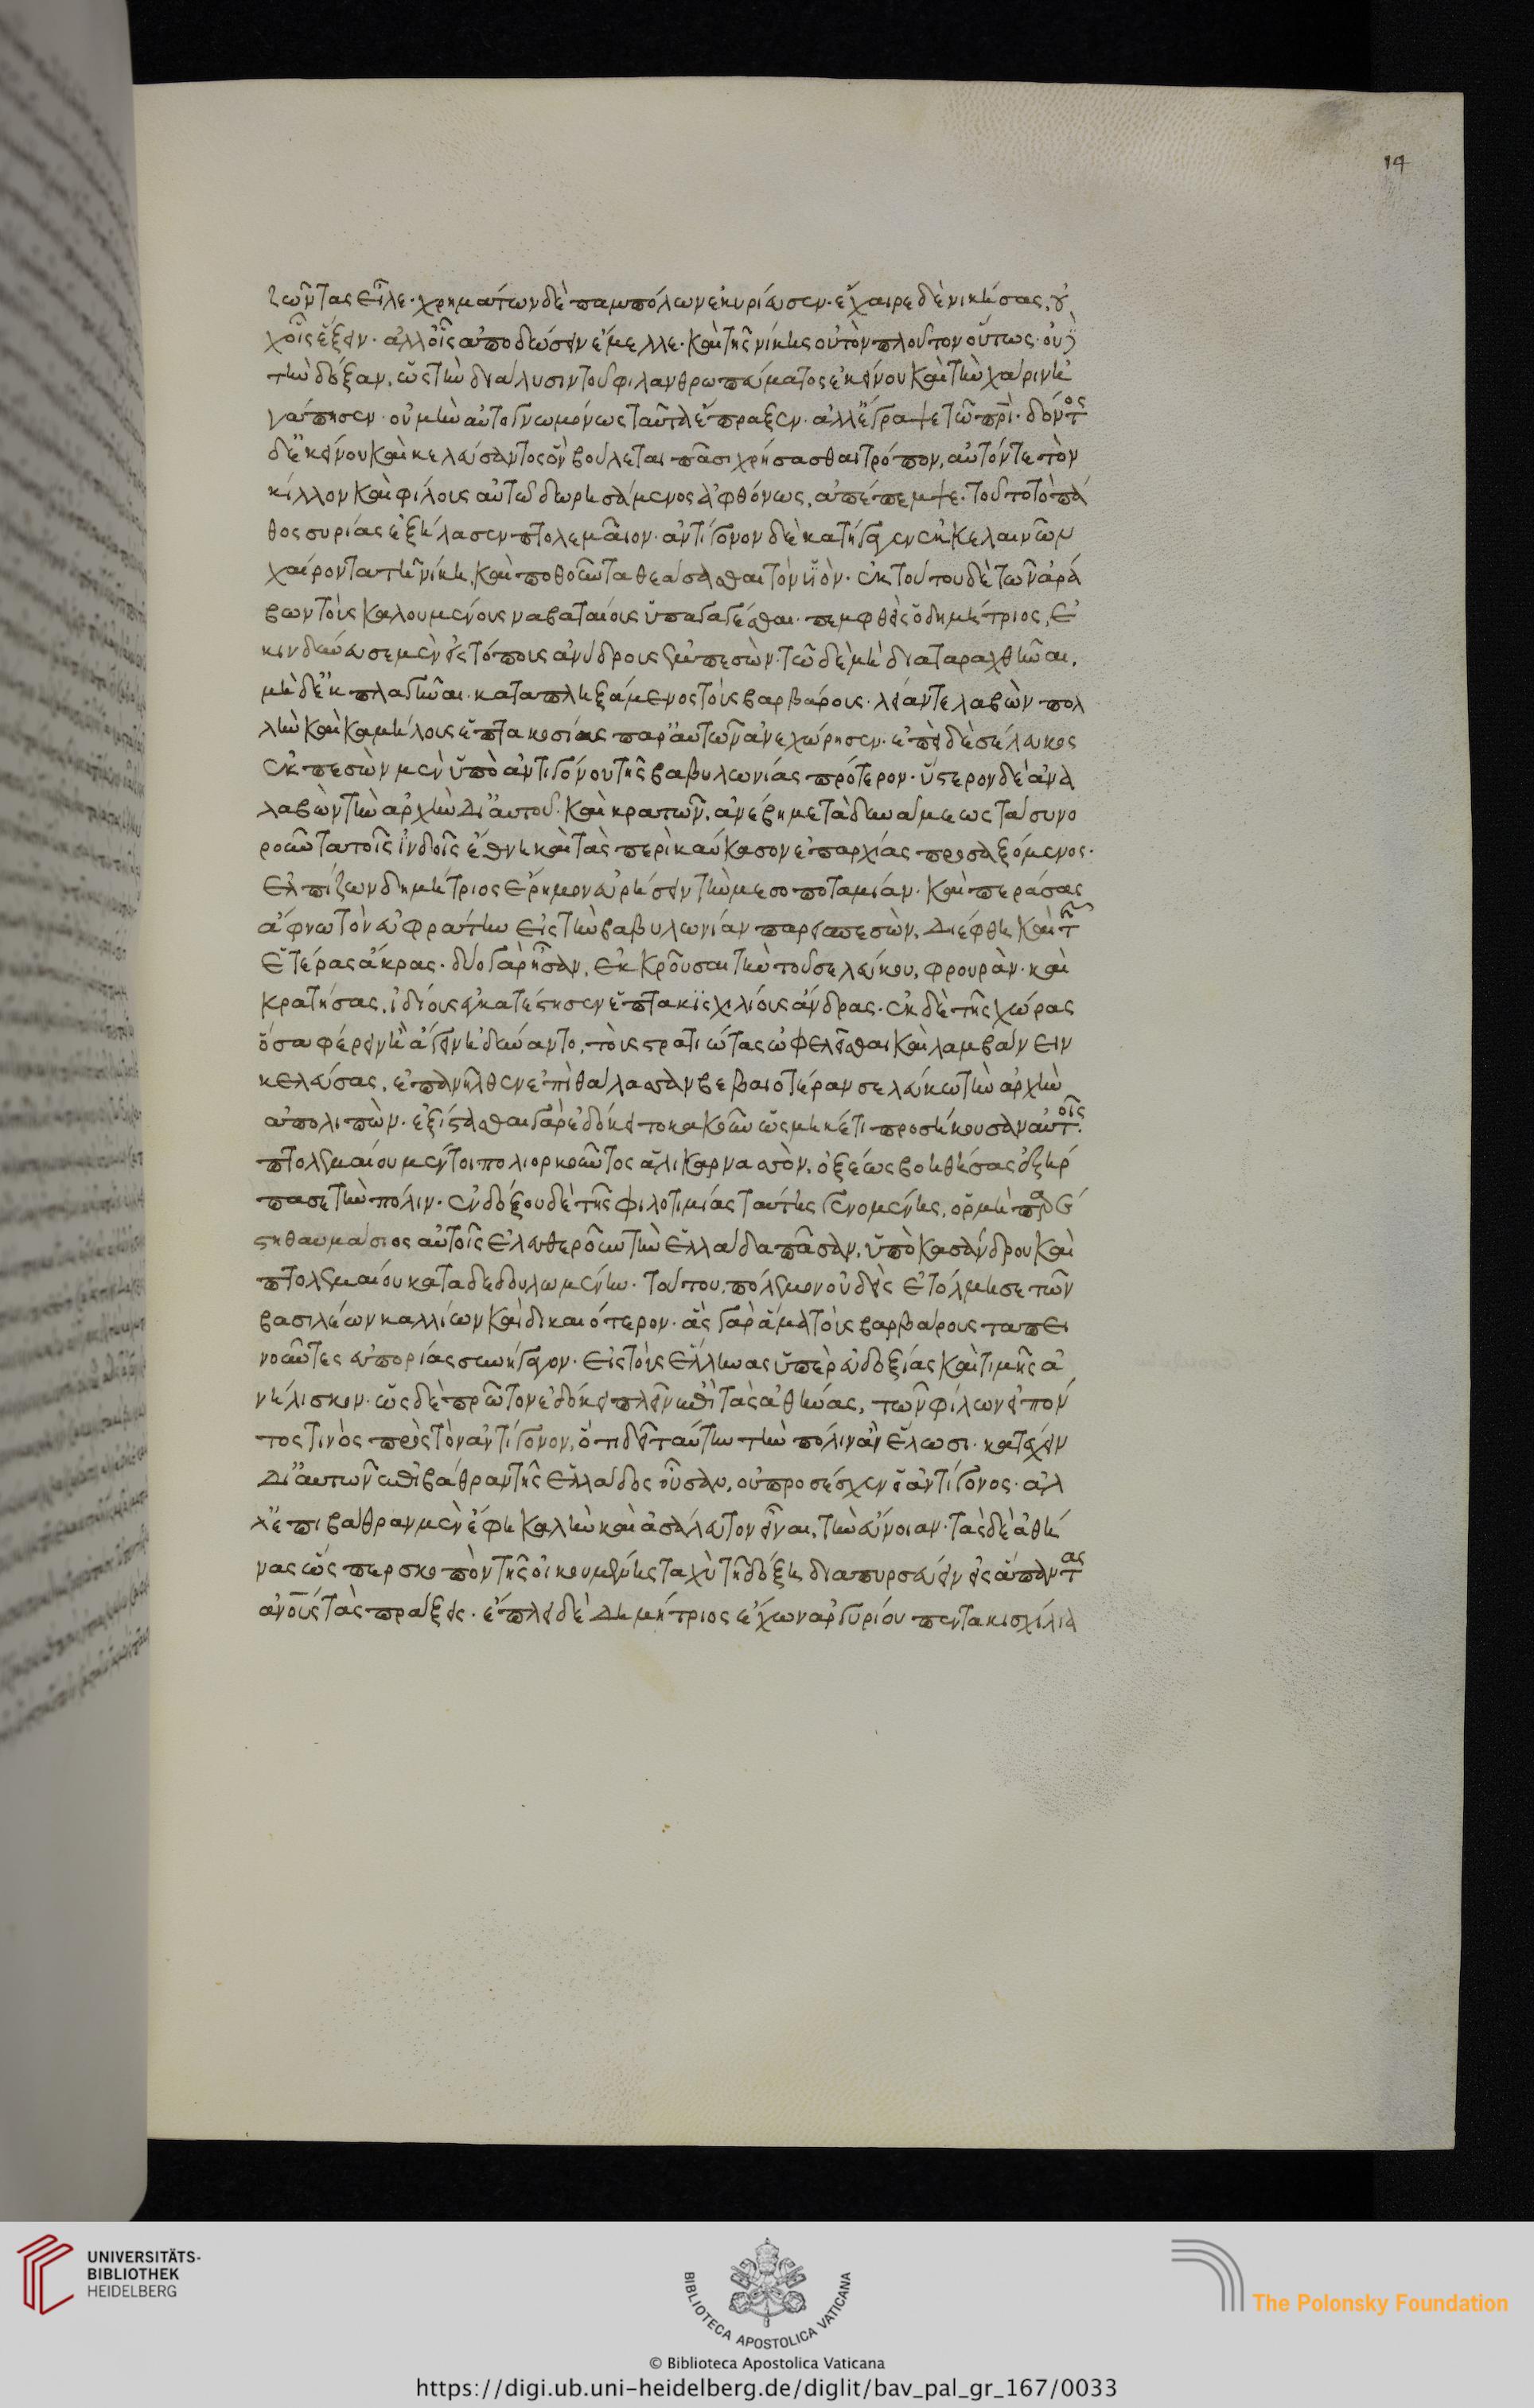 14
ζῶντας εἷλε· χρημάτων δὲ παμπόλων ἐκυρίευσεν· ἔχαιρε δὲ νικήσας, οὐ
χ οἷς ἕξειν· ἀλλ οἷς ἀποδώσειν ἔμελλε· καὶ τῆς νίκης οὐ τὸν πλοῦτον οὕτως· οὐδὲ
τὴν δόξαν, ὡς τὴν διάλυσιν τοῦ φιλανθρωπεύματος ἐκείνου καὶ τὴν χάριν ἠ
γάπησεν· οὐ μὴν αὐτογνωμόνως ταῦτα ἔπραξεν· ἀλλ ἔγραψε τῶ πρὶ· δόντος
δ ἐκείνου καὶ κελεύσαντος ὃν βούλεται πᾶσι χρήσασθαι τρόπον, αὐτόν τε τὸν
κίλλον καὶ φίλους αὐτοῦ δωρησάμενος ἀφθόνως, ἀπέπεμψε· τοῦτο τὸ πά
θος συρίας ἐξήλασεν πτολεμαῖον· ἀντίγονον δὲ κατήγαγεν ἐκ κελαινῶν
χαίροντα τῆ νίκη, καὶ ποθοῦντα θεάσασθαι τὸν υἱὸν· ἐκ τούτου δὲ τῶν ἀρά
βων τοὺς καλουμένους ναβαταίους ὑπαγαγέσθαι· πεμφθεὶς ὁ δημήτριος, ἐ
κινδύνευσε μὲν εἰς τόπους ἀνύδρους ἐμπεσὼν· τῶ δὲ μὴ διαταραχθῆναι,
μὴ δ ἐκπλαγῆναι· καταπληξάμενος τοὺς βαρβάρους· λείαν τε λαβὼν πολ
λὴν καὶ καμήλους ἑπτακοσίας παρ αὐτῶν ἀνεχώρησεν· ἐπεὶ δὲ σέλευκος
ἐκπεσὼν μὲν ὑπὸ ἀντιγόνου τῆς βαβυλωνίας πρότερον· ὕστερον δὲ ἀνα
λαβὼν τὴν ἀρχὴν δι αὑτοῦ· καὶ κρατῶν, ἀνέβη μετὰ δυνάμεως τὰ συνο
ροῦντα τοῖς ἰνδοῖς ἔθνη καὶ τὰς περὶ καύκασον ἐπαρχίας προσαξόμενος·
ἐλπίζων δημήτριος ἔρημον εὑρήσειν τὴν μεσοποταμίαν· καὶ περάσας
ἄφνω τὸν εὐφράτην εἰς τὴν βαβυλωνίαν παρεισπεσὼν, διέφθη καὶ τῆς
ἑτέρας ἄκρας· δύο γὰρ ἦσαν, ἐκκρούσαι τὴν τοῦ σελεύκου, φρουρὰν· καὶ
κρατήσας, ἰδίους ἐγκατέστησεν ἑπτακισχιλίους ἄνδρας· ἐκ δὲ τῆς χώρας
ὅσα φέρειν ἢ ἄγειν ἠδύναντο, τοὺς στρατιώτας ὠφελεῖσθαι καὶ λαμβάνειν
κελεύσας, ἐπανῆλθεν ἐπὶ θάλασσαν βεβαιοτέραν σελεύκω τὴν ἀρχὴν
ἀπολιπὼν· ἐξίστασθαι γὰρ ἐδόκει τοκακοῦν ὡς μηκέτι προσήκουσαν αὐτοῖς·
πτολεμαίου μέντοι πολιορκοῦντος ἁλικαρνασσὸν, ὀξέως βοηθήσας ἐξήρ
πασε τὴν πόλιν· ἐνδόξου δὲ τῆς φιλοτιμίας ταύτης γενομένης, ὁρμὴ παρέ
στη θαυμάσιος αὐτοῖς ἐλευθεροῦν τὴν ἑλλάδα πᾶσαν, ὑπὸ κασάνδρου καὶ
πτολεμαίου καταδεδουλωμένην· τούτου, πόλεμον οὐδεὶς ἐτόλμησε τῶν
βασιλέων καλλίων καὶ δικαιότερον· ἃς γὰρ ἅμα τοὺς βαρβάρους ταπει
νοῦντες εὐπορίας συνήγαγον· εἰς τοὺς ἕλληνας ὑπὲρ εὐδοξίας καὶ τιμῆς ἀ
νήλισκον· ὡς δὲ πρῶτον ἐδόκει πλεῖν ἐπὶ τὰς ἀθήνας, τῶν φίλων εἰπόν
τος τινὸς πρὸς τὸν ἀντίγονον, ὅτι δεῖ ταύτην τὴν πόλιν ἂν ἕλωσι· κατέχειν
δι αὑτῶν ἐπιβάθραν τῆς ἑλλάδος οὖσαν, οὐ προσέσχεν ὁ ἀντίγονος· ἀλ
λ ἐπιβάθραν μὲν ἔφη καλὴν καὶ ἀσάλευτον εἶναι, τὴν εὔνοιαν· τὰς δὲ ἀθή
νας ὥσπερ σκοπὸν τῆς οἰκουμένης ταχὺ τῆ δόξη διαπυρσεύειν εἰς ἅπαντας
ἀνους τὰς πράξεις· ἔπλει δὲ δημήτριος ἔχων ἀργυρίου πεντακισχίλια
UNIVERSITÄTS-
BIBLIOTHEK
HEIDELBERG
BIBLIOTECA APOSTOLICA VATICANA
The Polonsky Foundation
© Biblioteca Apostolica Vaticana
https://digi.ub.uni-heidelberg.de/diglit/bav_pal_gr_167/0033